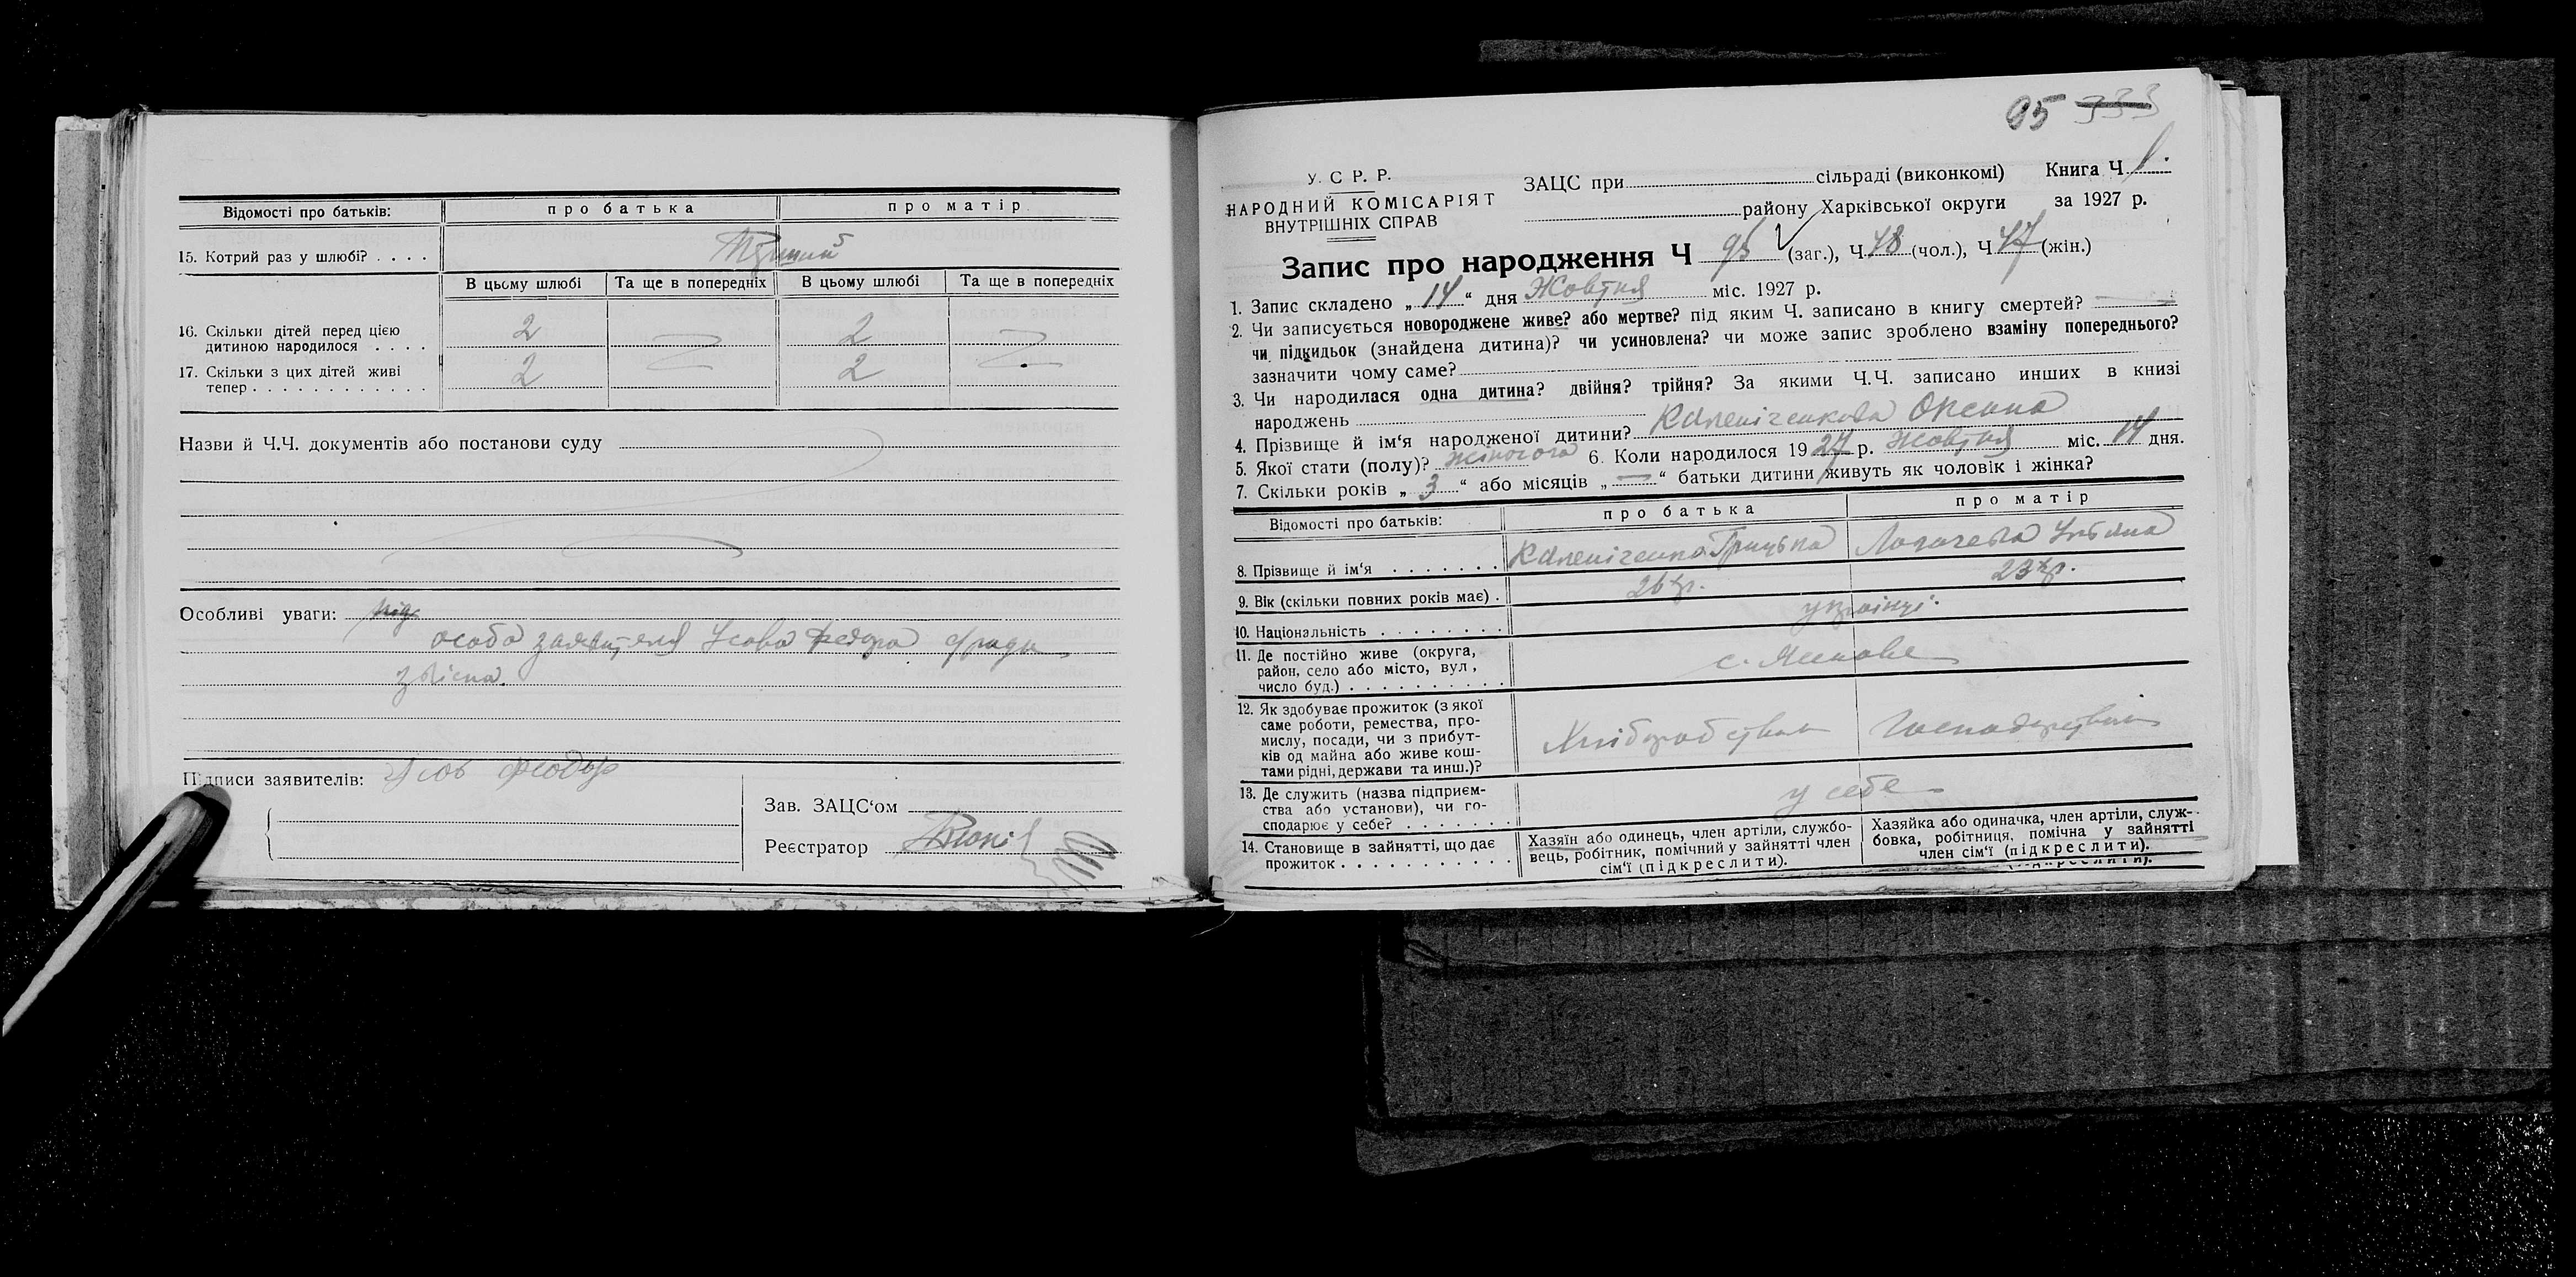 Відомості про батьків: про батька про матір
15. Котрий раз у шлюбі? . . . .
В цьому шлюбі Та ще в попередніх В цьому шлюбі Та ще в попередніх
16. Скільки дітей перед цією
дитиною народилося . . . . 2 — 2 —
17. Скільки з цих дітей живі
тепер . . . . . . . . . . . . 2 — 2 —
Назви й Ч.Ч. документів або постанови суду
Особливі уваги:
особа заявителя Усова Федора с/раді
звісна.
Підписи заявителів: Усов Федор
Зав. ЗАЦС‘ом
Реєстратор
95 333
У. С. Р. Р.
НАРОДНИЙ КОМІСАРІЯТ
ВНУТРІШНІХ СПРАВ
ЗАЦС при сільраді (виконкомі) Книга Ч 1.
району Харківської округи за 1927 р.
Запис про народження Ч 95 (заг.), Ч 48 (чол.), Ч 47 (жін.)
1. Запис складено „ 14 “ дня Жовтня міс. 1927 р.
2. Чи записується новороджене живе? або мертве? під яким Ч. записано в книгу смертей? —
чи підкидьок (знайдена дитина)? чи усиновлена? чи може запис зроблено взаміну попереднього?
зазначити чому саме?
3. Чи народилася одна дитина? двійня? трійня? За якими Ч.Ч. записано инших в книзі
народжень
4. Прізвище й ім‘я народженої дитини? Каленіченкова Оксана
5. Якої стати (полу)? жіночого 6. Коли народилося 1927 р. Жовтня міс. 14 дня.
7. Скільки років „ 3 “ або місяців „ — “ батьки дитини живуть як чоловік і жінка?
Відомості про батьків: про батька про матір
8. Прізвище й ім‘я . . . . . . . Каленіченко Грицько Уляна
9. Вік (скільки повних років має) . 26 р. 23 р.
10. Національність . . . . . . . . українці.
11. Де постійно живе (округа,
район, село або місто, вул.,
число буд.) . . . . . . . . . . с.
12. Як здобуває прожиток (з якої
саме роботи, ремества, про-
мислу, посади, чи з прибут-
ків од майна або живе кош-
тами рідні, держави та инш.)? Хліборобством Господарством
13. Де служить (назва підприєм-
ства або установи), чи го-
сподарює у себе? . . . . . . . у себе
14. Становище в зайнятті, що дає
прожиток . . . . . . . . . . . .
Хазяїн або одинець, член артіли, службо-
вець, робітник, помічний у зайнятті член
сім‘ї (підкреслити).
Хазяйка або одиначка, член артіли, служ-
бовка, робітниця, помічна у зайнятті
член сім‘ї (підкреслити).